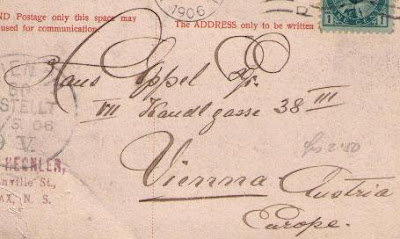 ND Postage only this space may
used for communication.
The ADDRESS only to be written
1906
1 1
Hans Appel Jr.
VII Kandlgasse 38 III
Vienna Austria
Europe.
IEN
BESTELLT
5 06
V
HECHLER,
anville St.,
AX, N. S.